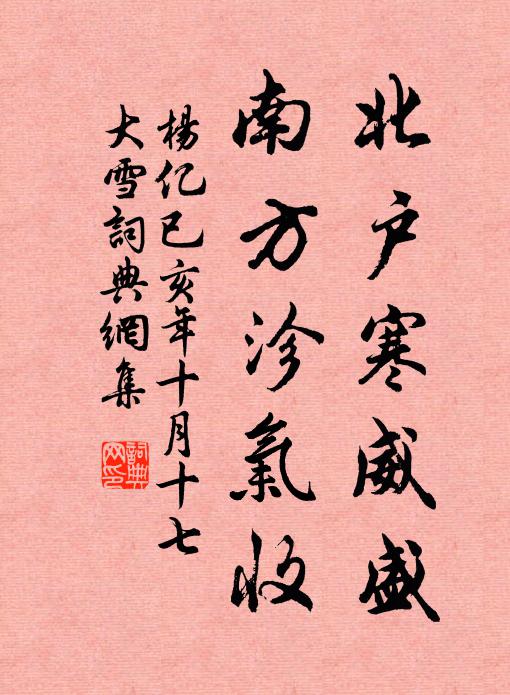 北戶寒威盛
南方沴氣收
楊亿己亥年十月十七
大雪詞典網集
詞典网印